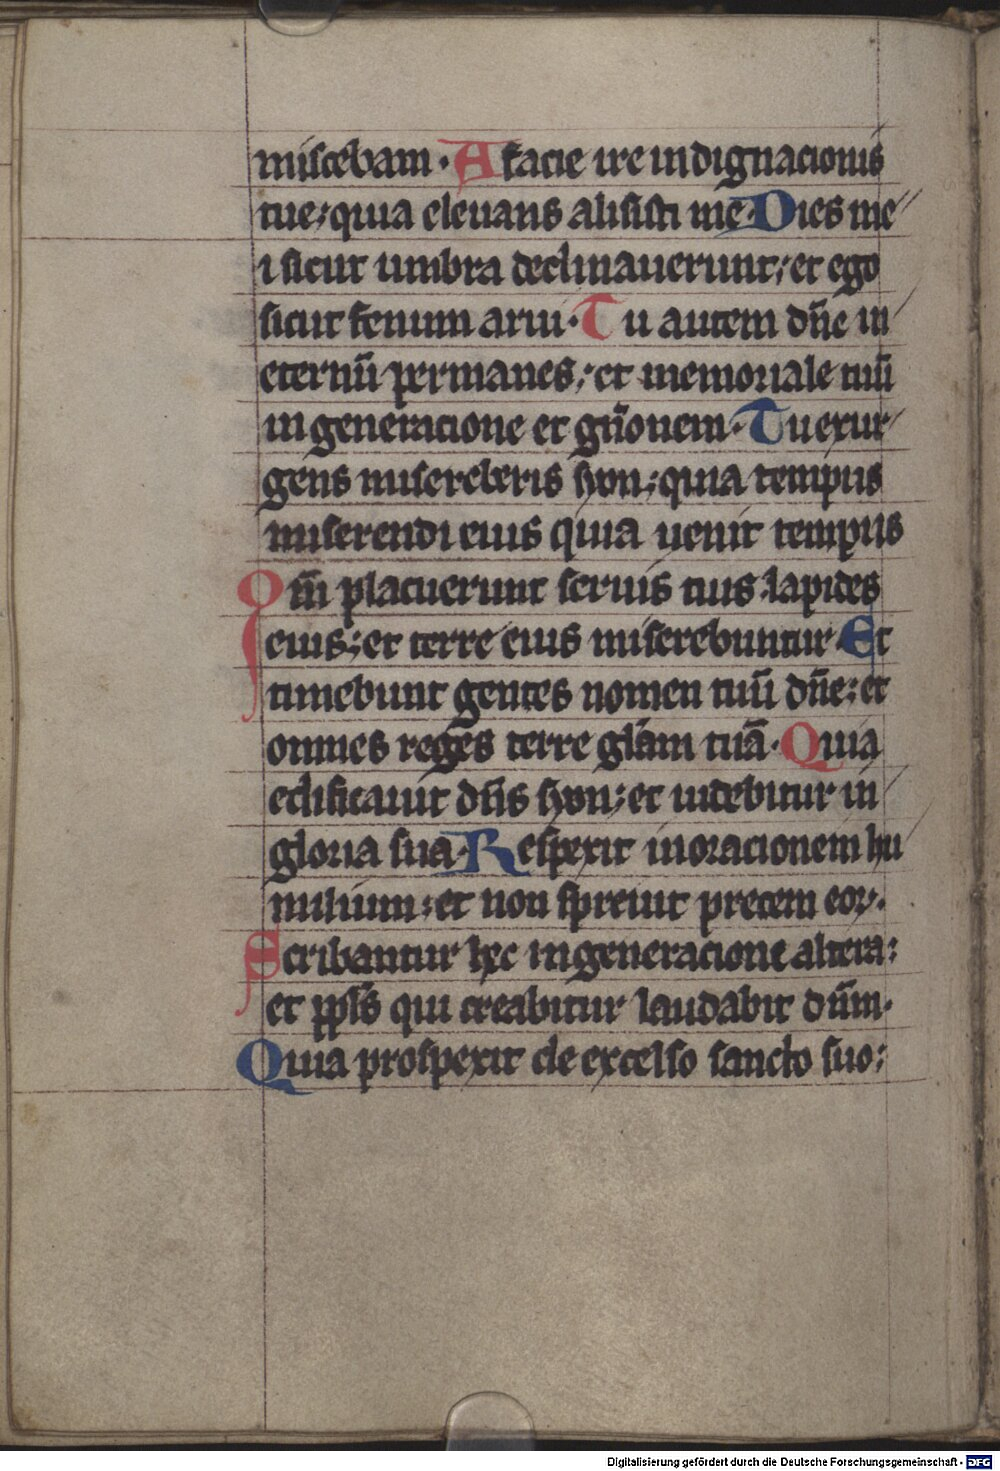 miscebam. A facie ire indignacionis
tue; quia eleuans alisisti me. Dies me
i sicut umbra declinauerunt; et ego
sicut fenum arui. Tu autem dn̄e in
eternū permanes; et memoriale tuū
in generacione et gn̄onem. Tu exur
gens misereberis syon; quia tempus
miserendi eius quia uenit tempus
Qm̄ placuerunt seruis tuis lapides
eius; et terre eius miserebuntur. Et
timebunt gentes nomen tuū dn̄e; et
omnes reges terre glām tuā. Quia
edificauit dn̄s syon; et uidebitur in
gloria sua. Respexit in oracionem hu
milium; et non spreuit precem eoꝝ.
Scribantur hec in generacione altera;
et ppl̄s qui creabitur laudabit dn̄m.
Quia prospexit de excelso sancto suo;
Digitalisierung gefördert durch die Deutsche Forschungsgemeinschaft - DFG